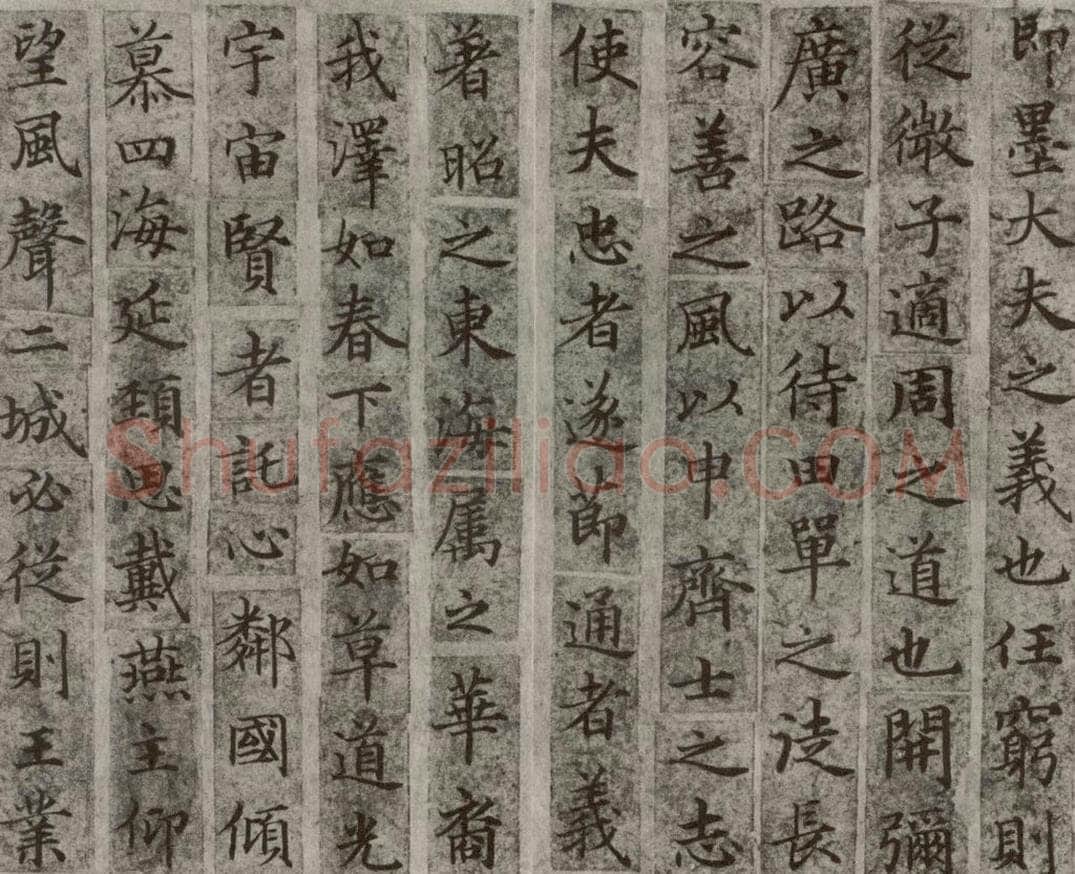 即墨大夫之義也任窮則
從微子適周之道也開彌
廣之路以待田單之徒長
容善之風以申齊士之志
使夫忠者遂節通者義
著昭之東海屬之華裔
我澤如春下應如草道光
宇宙賢者託心鄰國傾
慕四海延頸思戴燕主仰
望風聲二城必從則王業
Shufaziliao.COM